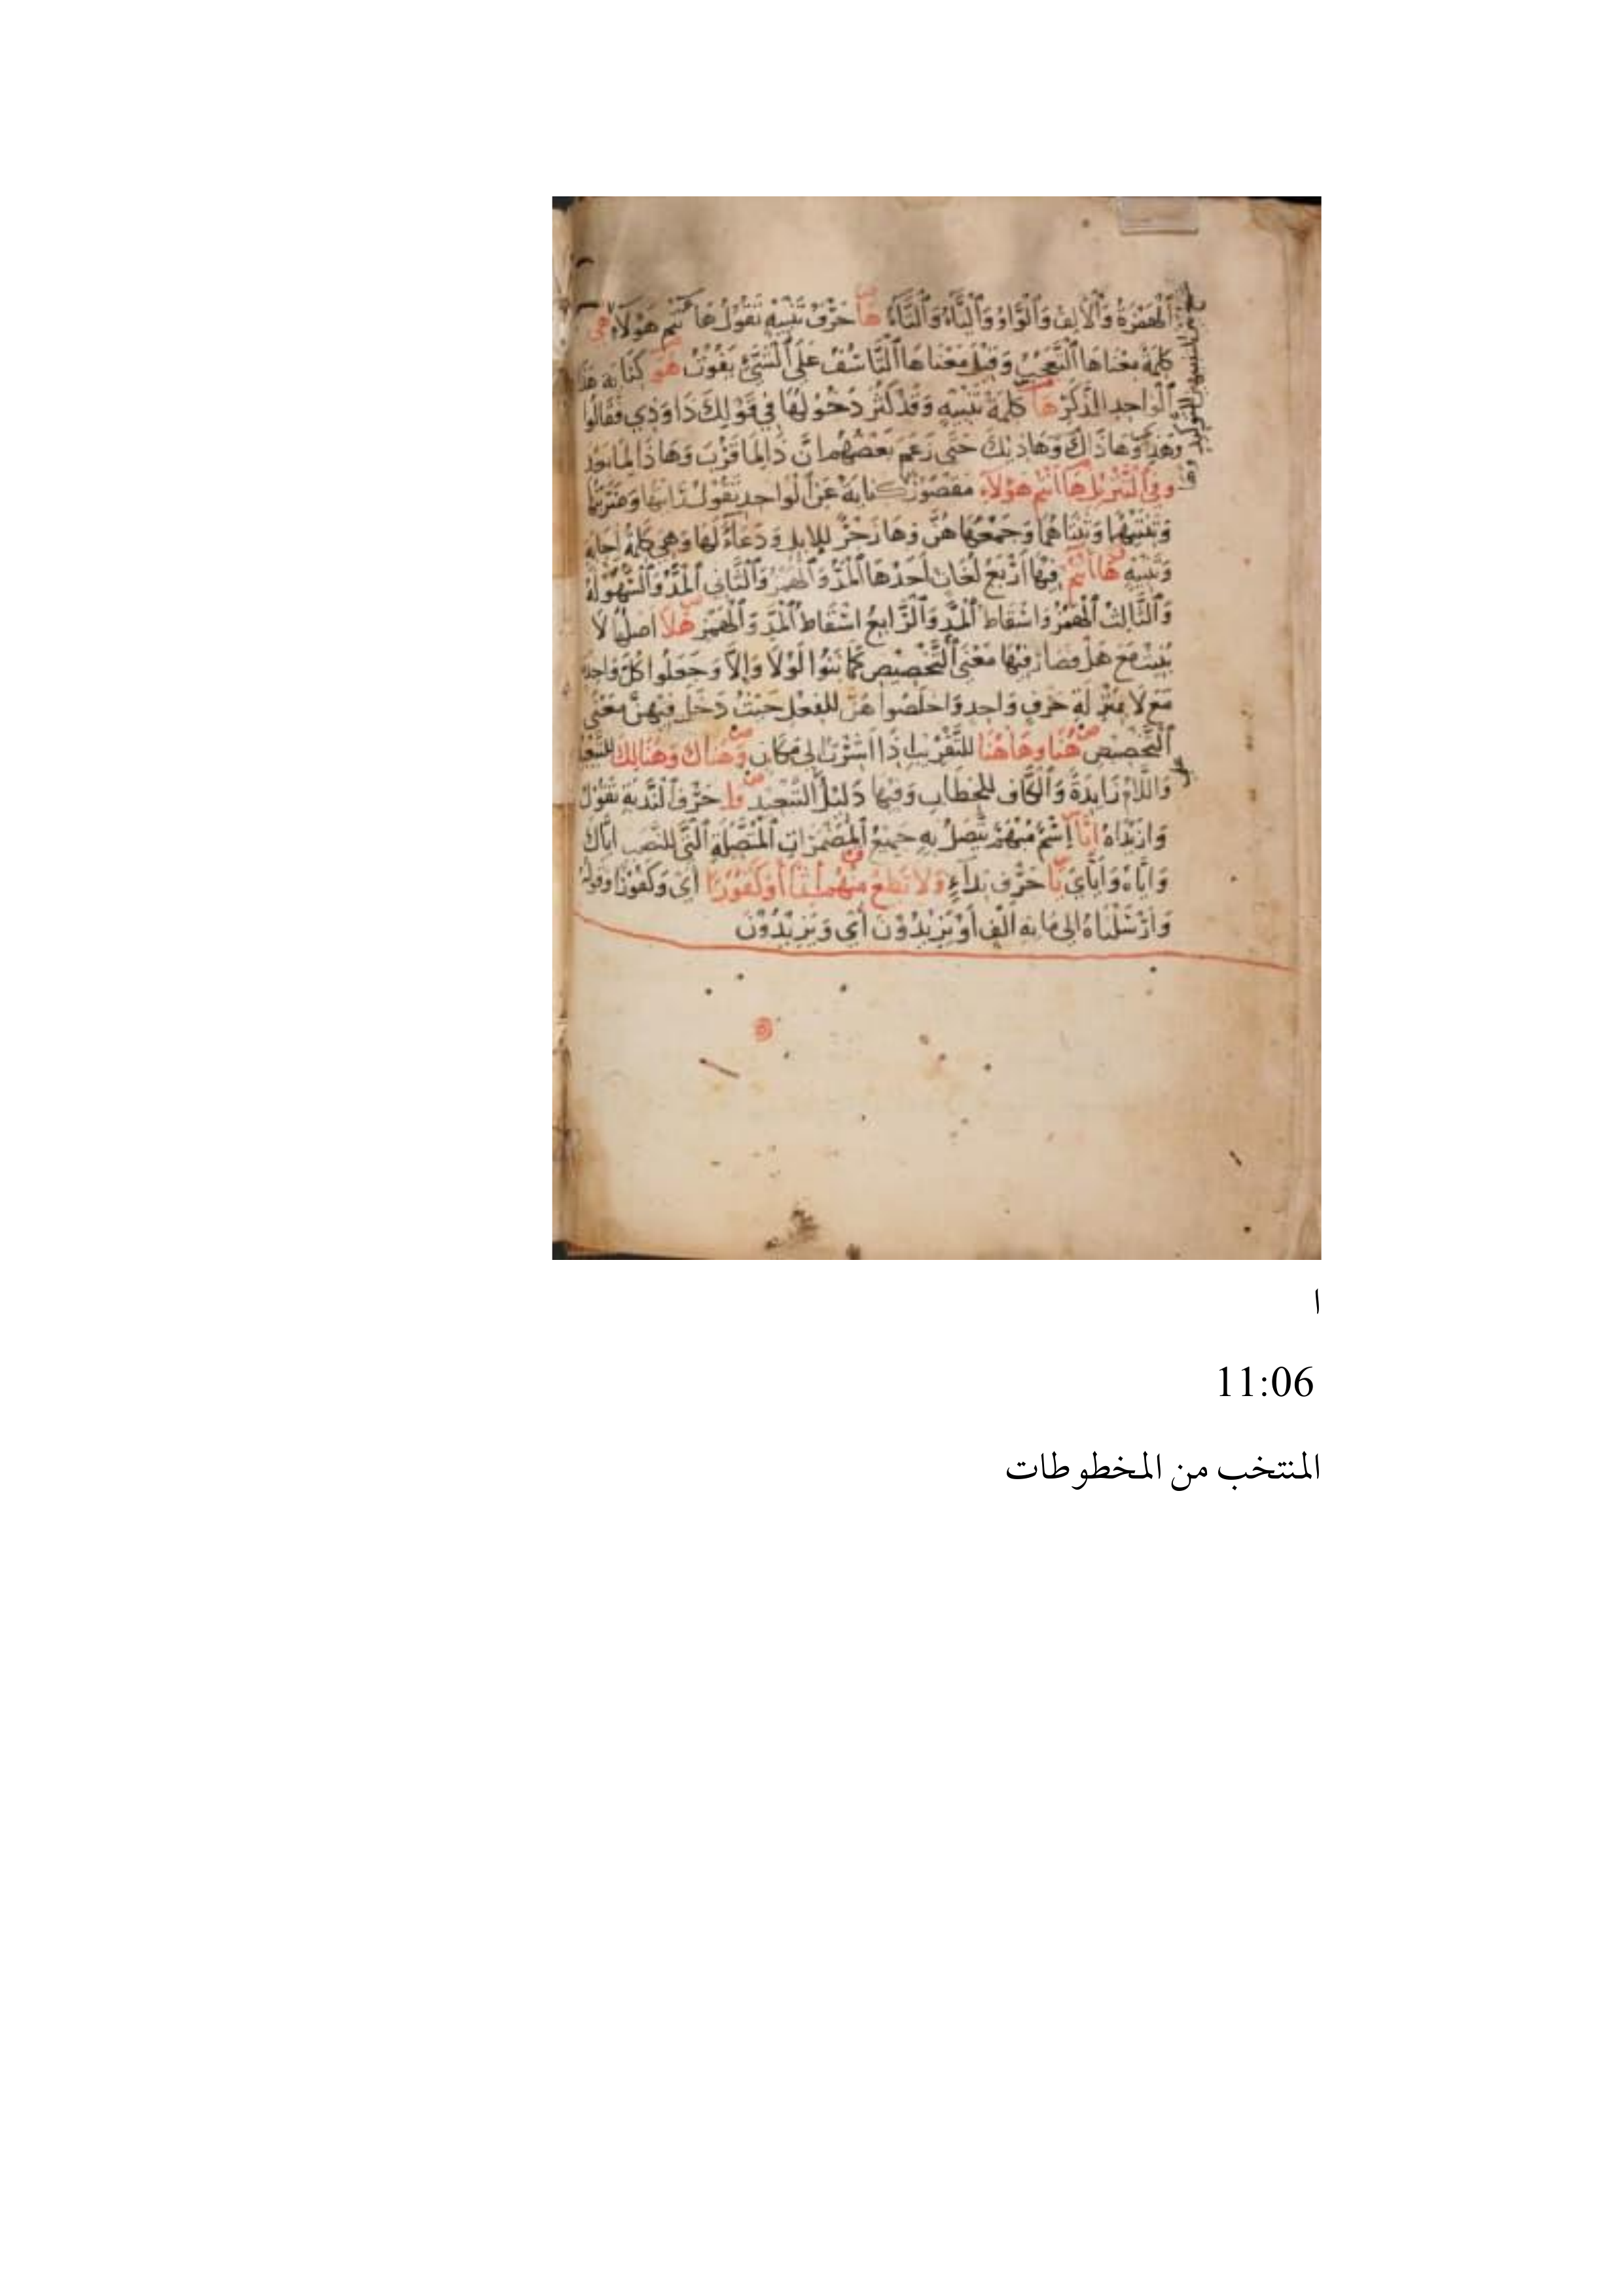 اَلْهَمْزَةُ وَالْاَلِفُ وَالْوَاوُ وَالْيَاءُ وَالتَّاءُ هَا حَرْفُ تَنْبِيهٍ تَقُولُ هَا اَنْتُمْ هَؤُلَاءِ هى
كَلِمَةٌ مَعْنَاهَا التَّعَجُّبُ وَقِيلَ مَعْنَاهَا التَّأَسُّفُ عَلَى الشَّيْءِ يَفُوتُ هُوَ كنايه
الْوَاحِدِ الْذَكَرِ هَا كَلِمَةُ تَنْبِيهٍ وَقَدْ كَثُرَ دُخُولُهَا فِي قَوْلِكَ ذَا وَذِي فَقَالُوا
وَهَذِي وَهَاذَاكَ وَهَاذِيكَ حَتَى زَعَمَ بَعْضُهُم اَنَّ ذَا لِمَا قَرُبَ وَهَاذَا لِمَا بَعُدَ
وَفِي التَّنْزِيلِ هَا اَنْتُمْ هَؤُلَاءِ مَقْصُورٌ كِنَايَةٌ عَنِ الْوَاحِدِ تَقُولُ
وَتَثْنِيَتُهُمَا وَجَمْعُهَا هُنَّ وَهَا زَجْرٌ لِلْاِبِلِ وَدُعَاءٌ لَهَا وَهِيَ كَلِمَةُ اِجَابَة
وَتَنْبِيهٍ هَا اَنْتُمْ فِيهَا اَرْبَعُ لُغَاتٍ اَحَدُهَا الْمَدُّ وَالْهَمْزُ وَالثَّانِي الْمَدُّ وَالسُّهُولَةُ
وَالثَّالِثُ الْهَمْزُ وَاسْقَاطُ الْمَدِّ وَالرَّابِعُ اسْقَاطُ الْمَدِّ وَالْهَمْزِ هَلَّا اصلها لَا
بُنِيَتْ مَعَ هَلْ فَصَارَ فِيهَا مَعْنَى التَّخْصِيصِ كَمَا بَنَوْا لَوْلَا وَاِلَّا وَجَعَلُوا كُلَّ وَاحِدَة
مَعَ لَا بِمَنْزِلَةِ حَرْفٍ وَاحِدٍ وَاخْلَصُوا هُنَّ لِلْفِعْلِ حَيْثُ دَخَلَ فِيهِنَّ مَعْنَى
التَّخْصِيصِ هُنَا وَهَاهُنَا لِلتَّقْرِيبِ اِذَا اَشَرْتَ اِلَى مَكَانٍ وَهُنَاكَ وَهُنَالِكَ للتبعيد
وَاللَّامُ زَايِدَةٌ وَالْكَافُ لِلْخِطَابِ وَفِيهَا دَلِيلُ التَّبْعِيدِ وا حَرْفُ النُّدْبَةِ تَقُولُ
وَازَيْدَاهُ اِيَّا اِسْمٌ مُبْهَمٌ تَتَّصِلُ بِهِ جَمِيعُ الْمُضْمَرَاتِ الْمُتَّصِلَةِ الَّتِي لِلنَّصْبِ اِيَّاكَ
وَاِيَّاهُ وَاِيَّايَ يَا حَرْفُ نِدَاءٍ وَلَا تُطِعْ مِنْهُمْ آثِمًا أَوْ كَفُورًا أَيْ وَكَفُورًا وَقَوْلُه
وَاَرْسَلْنَاهُ اِلَى مِايَةِ اَلْفٍ أَوْ يَزِيدُونَ أَيْ وَيَزِيدُونَ
ا
11:06
المنتخب من المخطوطات